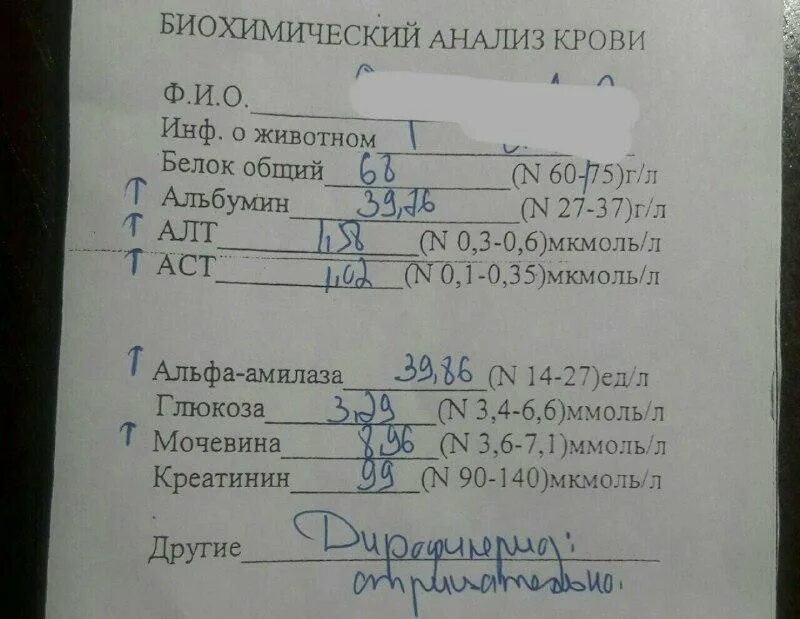 БИОХИМИЧЕСКИЙ АНАЛИЗ КРОВИ
Ф.И.О.
Инф. о животном
Белок общий 68 (N 60-75)г/л
↑ Альбумин 39,76 (N 27-37)г/л
↑ АЛТ 1,58 (N 0,3-0,6)мкмоль/л
↑ АСТ 1,02 (N 0,1-0,35)мкмоль/л
↑ Альфа-амилаза 39,86 (N 14-27)ед/л
Глюкоза 3,29 (N 3,4-6,6)ммоль/л
↑ Мочевина 8,96 (N 3,6-7,1)ммоль/л
Креатинин 99 (N 90-140)мкмоль/л
Другие Дирофилариоз:
отрицательно.